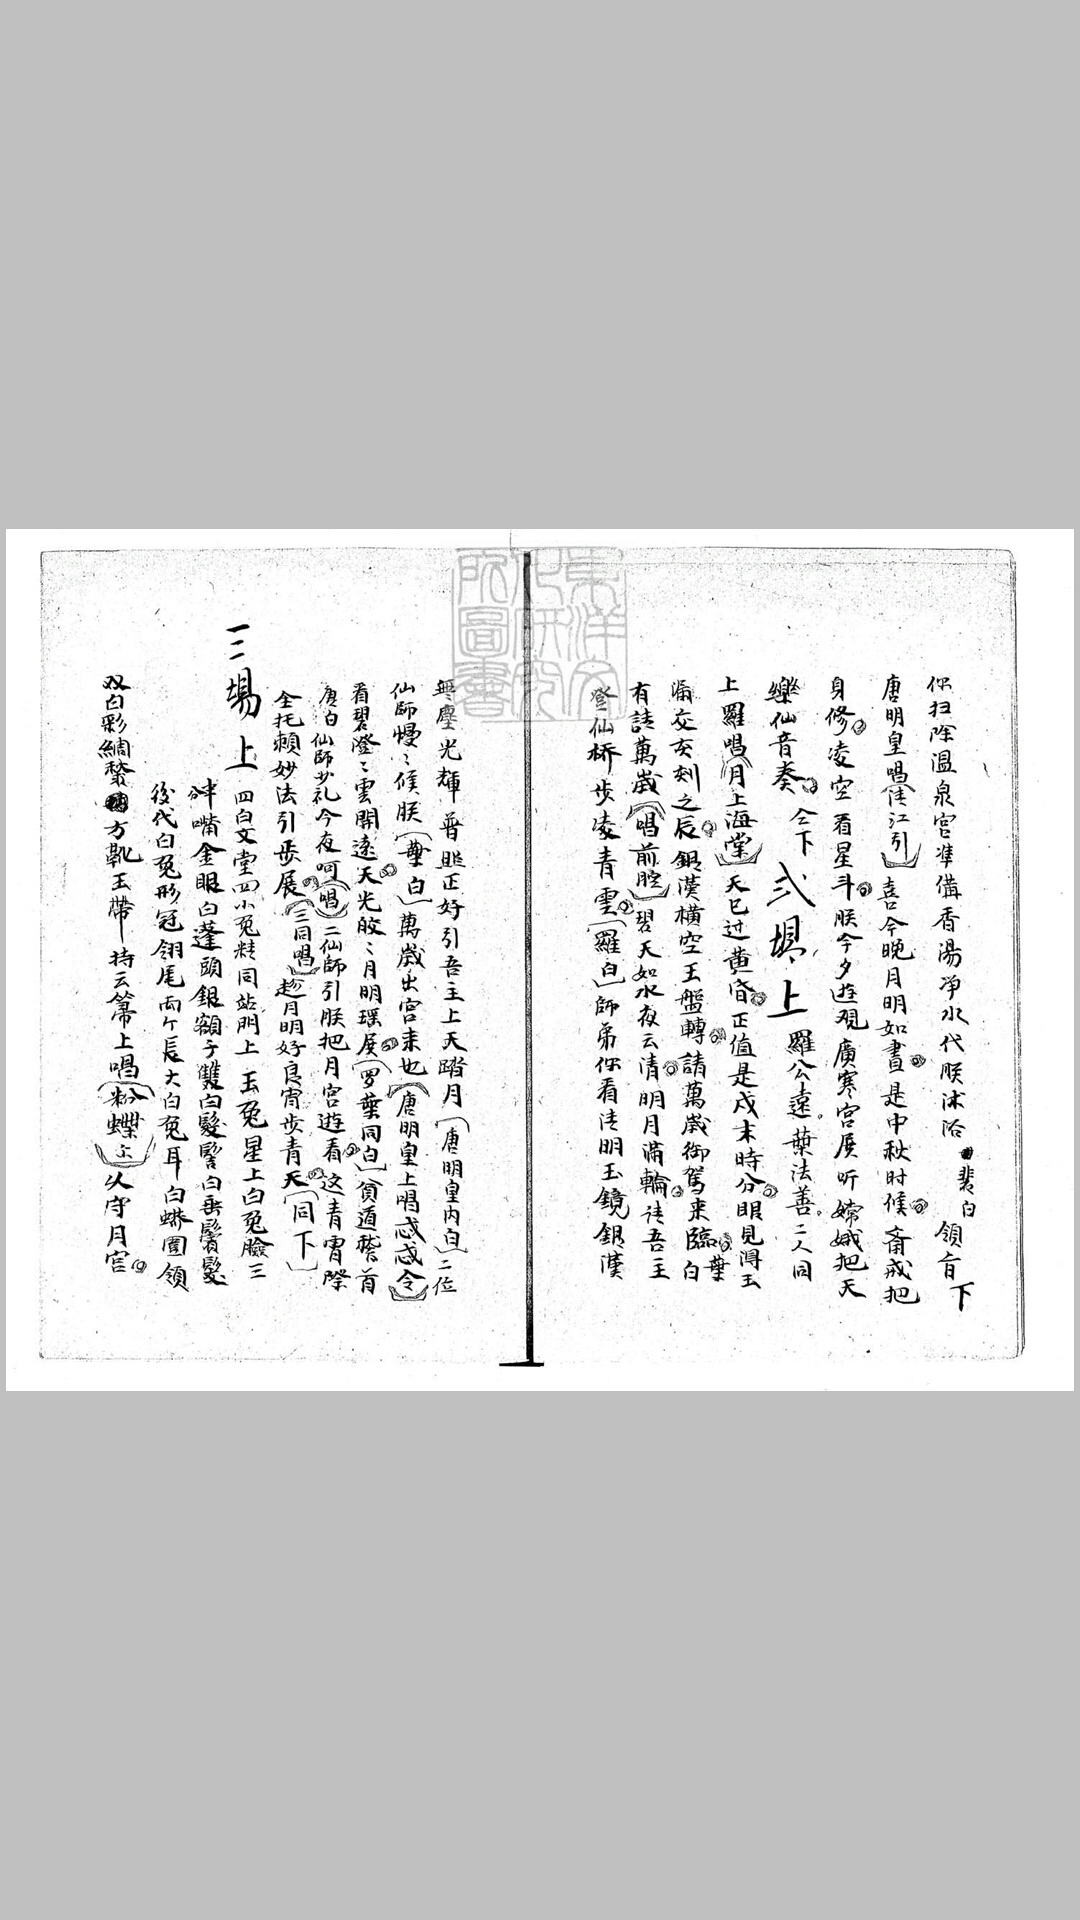 你扫除温泉宫準備香湯净水代朕沐浴 裴白 領旨 下
唐明皇唱 引 喜今晚月明如晝是中秋时候斎戒把
身修凌空看星斗朕今夕遊观廣寒宮殿听嫦娥把天
樂仙音奏 仝下 弍場 上 羅公遠葉法善二人同
上羅唱 月上海棠 天已过黄昏正值是戌末時分眼見得玉
漏交亥刻之辰銀漢横空玉盤轉請萬歲御駕来臨 葉白
有請萬歲 唱前腔 碧天如水夜云清明月满輪 吾主
登仙桥步凌青雲 羅白 師弟你看 明玉鏡銀漢
無塵光輝普照正好引吾主上天踏月 唐明皇内白 二位
仙師慢〻候朕 葉白 萬歲出宫来也 唐明皇上唱忒忒令
看碧澄〻雲開遠天光皎〻月明瑶展 罗葉同白 貧道稽首
唐白仙師少礼今夜呵 唱 二仙師引朕把月宫遊看这青霄際
全托賴妙法引步展 三同唱 趂月明好良宵步青天 同下
三場 上 四白文堂四小兔精同站門上玉兔星上白兔臉三
絆嘴金眼白蓬頭銀額子雙白髮髻白垂鬢髮
後代白兔形冠翎尾兩个長大白兔耳白蟒圍領
双白彩綢 方靴玉帶 持云箒上唱 粉蝶 久守月宫